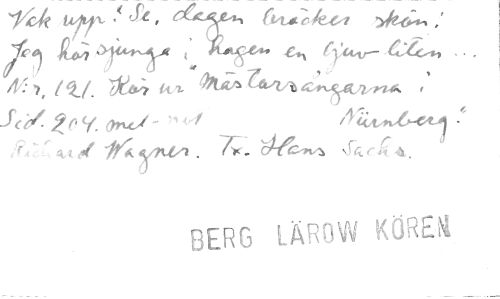 Vak upp! Se, dagen bräcker skön!
Jag hör sjunga i hagen en ljuv liten ...
N:r, 121. Kör ur "Mästarsångarna i
Nürnberg."
Sid. 204. mel-not
Richard Wagner. Tx. Hans Sachs.
BERG LÄROW KÖREN